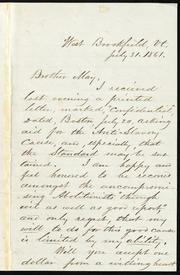 West Brookfield, Vt.
July 31. 1861.
Brother May,
I recieved
last evening a printed
letter, marked, "Confidential"
dated, Boston July 20, asking
aid for the Anti-Slavery
Cause, and especially, that
the Standard may be sus-
tained. I am happy and
feel honored to be record
amongst the uncomprom-
ising Abolitionists through
evil as well as good report,
and only regret, that my
will to do for this good cause
is limited by my ability.
Will you accept one
dollar from a willing heart